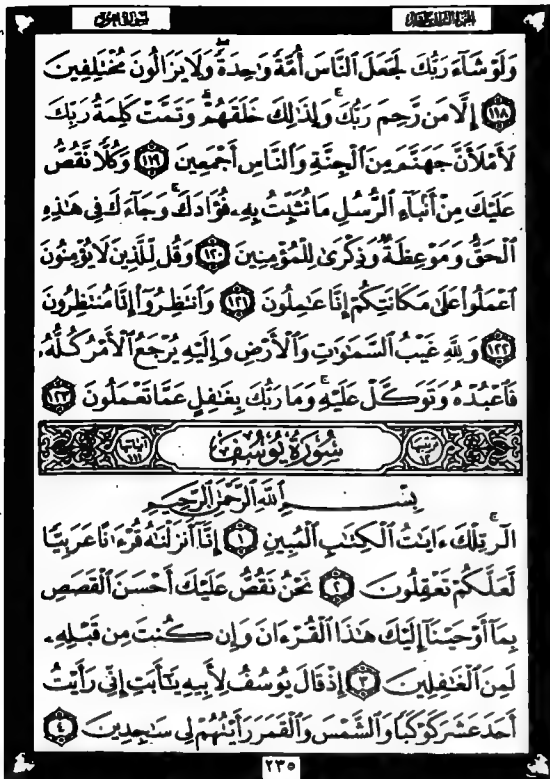 وَلَوْ شَآءَ رَبُّكَ لَجَعَلَ ٱلنَّاسَ أُمَّةً وَٰحِدَةً ۖ وَلَا يَزَالُونَ مُخْتَلِفِينَ
١١٨ إِلَّا مَن رَّحِمَ رَبُّكَ ۚ وَلِذَٰلِكَ خَلَقَهُمْ ۗ وَتَمَّتْ كَلِمَةُ رَبِّكَ
لَأَمْلَأَنَّ جَهَنَّمَ مِنَ ٱلْجِنَّةِ وَٱلنَّاسِ أَجْمَعِينَ ١١٩ وَكُلًّا نَّقُصُّ
عَلَيْكَ مِنْ أَنۢبَآءِ ٱلرُّسُلِ مَا نُثَبِّتُ بِهِۦ فُؤَادَكَ ۚ وَجَآءَكَ فِى هَٰذِهِ
ٱلْحَقُّ وَمَوْعِظَةٌ وَذِكْرَىٰ لِلْمُؤْمِنِينَ ١٢٠ وَقُل لِّلَّذِينَ لَا يُؤْمِنُونَ
ٱعْمَلُوا۟ عَلَىٰ مَكَانَتِكُمْ إِنَّا عَٰمِلُونَ ١٢١ وَٱنتَظِرُوٓا۟ إِنَّا مُنتَظِرُونَ
١٢٢ وَلِلَّهِ غَيْبُ ٱلسَّمَٰوَٰتِ وَٱلْأَرْضِ وَإِلَيْهِ يُرْجَعُ ٱلْأَمْرُ كُلُّهُۥ
فَٱعْبُدْهُ وَتَوَكَّلْ عَلَيْهِ ۚ وَمَا رَبُّكَ بِغَٰفِلٍ عَمَّا تَعْمَلُونَ ١٢٣
سُورَةُ يُوسُفَ
بِسْمِ ٱللَّهِ ٱلرَّحْمَٰنِ ٱلرَّحِيمِ
الٓر ۚ تِلْكَ ءَايَٰتُ ٱلْكِتَٰبِ ٱلْمُبِينِ ١ إِنَّآ أَنزَلْنَٰهُ قُرْءَٰنًا عَرَبِيًّا
لَّعَلَّكُمْ تَعْقِلُونَ ٢ نَحْنُ نَقُصُّ عَلَيْكَ أَحْسَنَ ٱلْقَصَصِ
بِمَآ أَوْحَيْنَآ إِلَيْكَ هَٰذَا ٱلْقُرْءَانَ وَإِن كُنتَ مِن قَبْلِهِۦ
لَمِنَ ٱلْغَٰفِلِينَ ٣ إِذْ قَالَ يُوسُفُ لِأَبِيهِ يَٰٓأَبَتِ إِنِّى رَأَيْتُ
أَحَدَ عَشَرَ كَوْكَبًا وَٱلشَّمْسَ وَٱلْقَمَرَ رَأَيْتُهُمْ لِى سَٰجِدِينَ ٤
٢٣٥